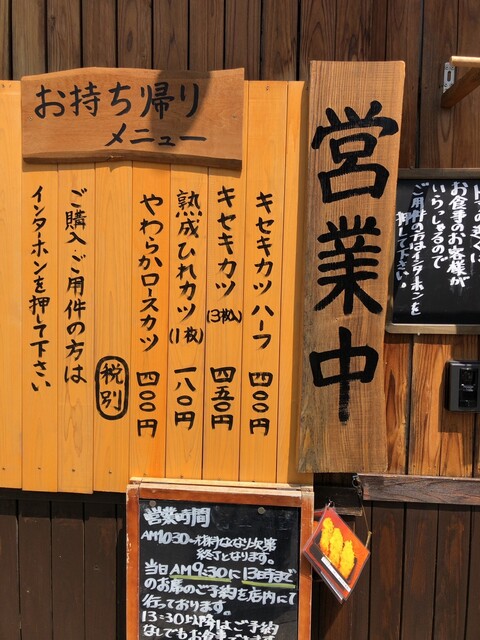 お持ち帰り
メニュー
営業中
キセキカツハーフ 四〇〇円
キセキカツ(3枚入) 四五〇円
熟成ひれカツ(1枚) 一八〇円
やわらかロースカツ 四〇〇円
税別
ご購入・ご用件の方は
インターホンを押して下さい
お食事のお客様が
いらっしゃるので
ご用件の方はインターホンを
押して下さい。
営業時間
AM10:30〜材料なくなり次第
終了となります。
当日AM9:30に13時まで
のお席のご予約を店内にて
行っております。
13:30以降はご予約
なしでもお食事できます